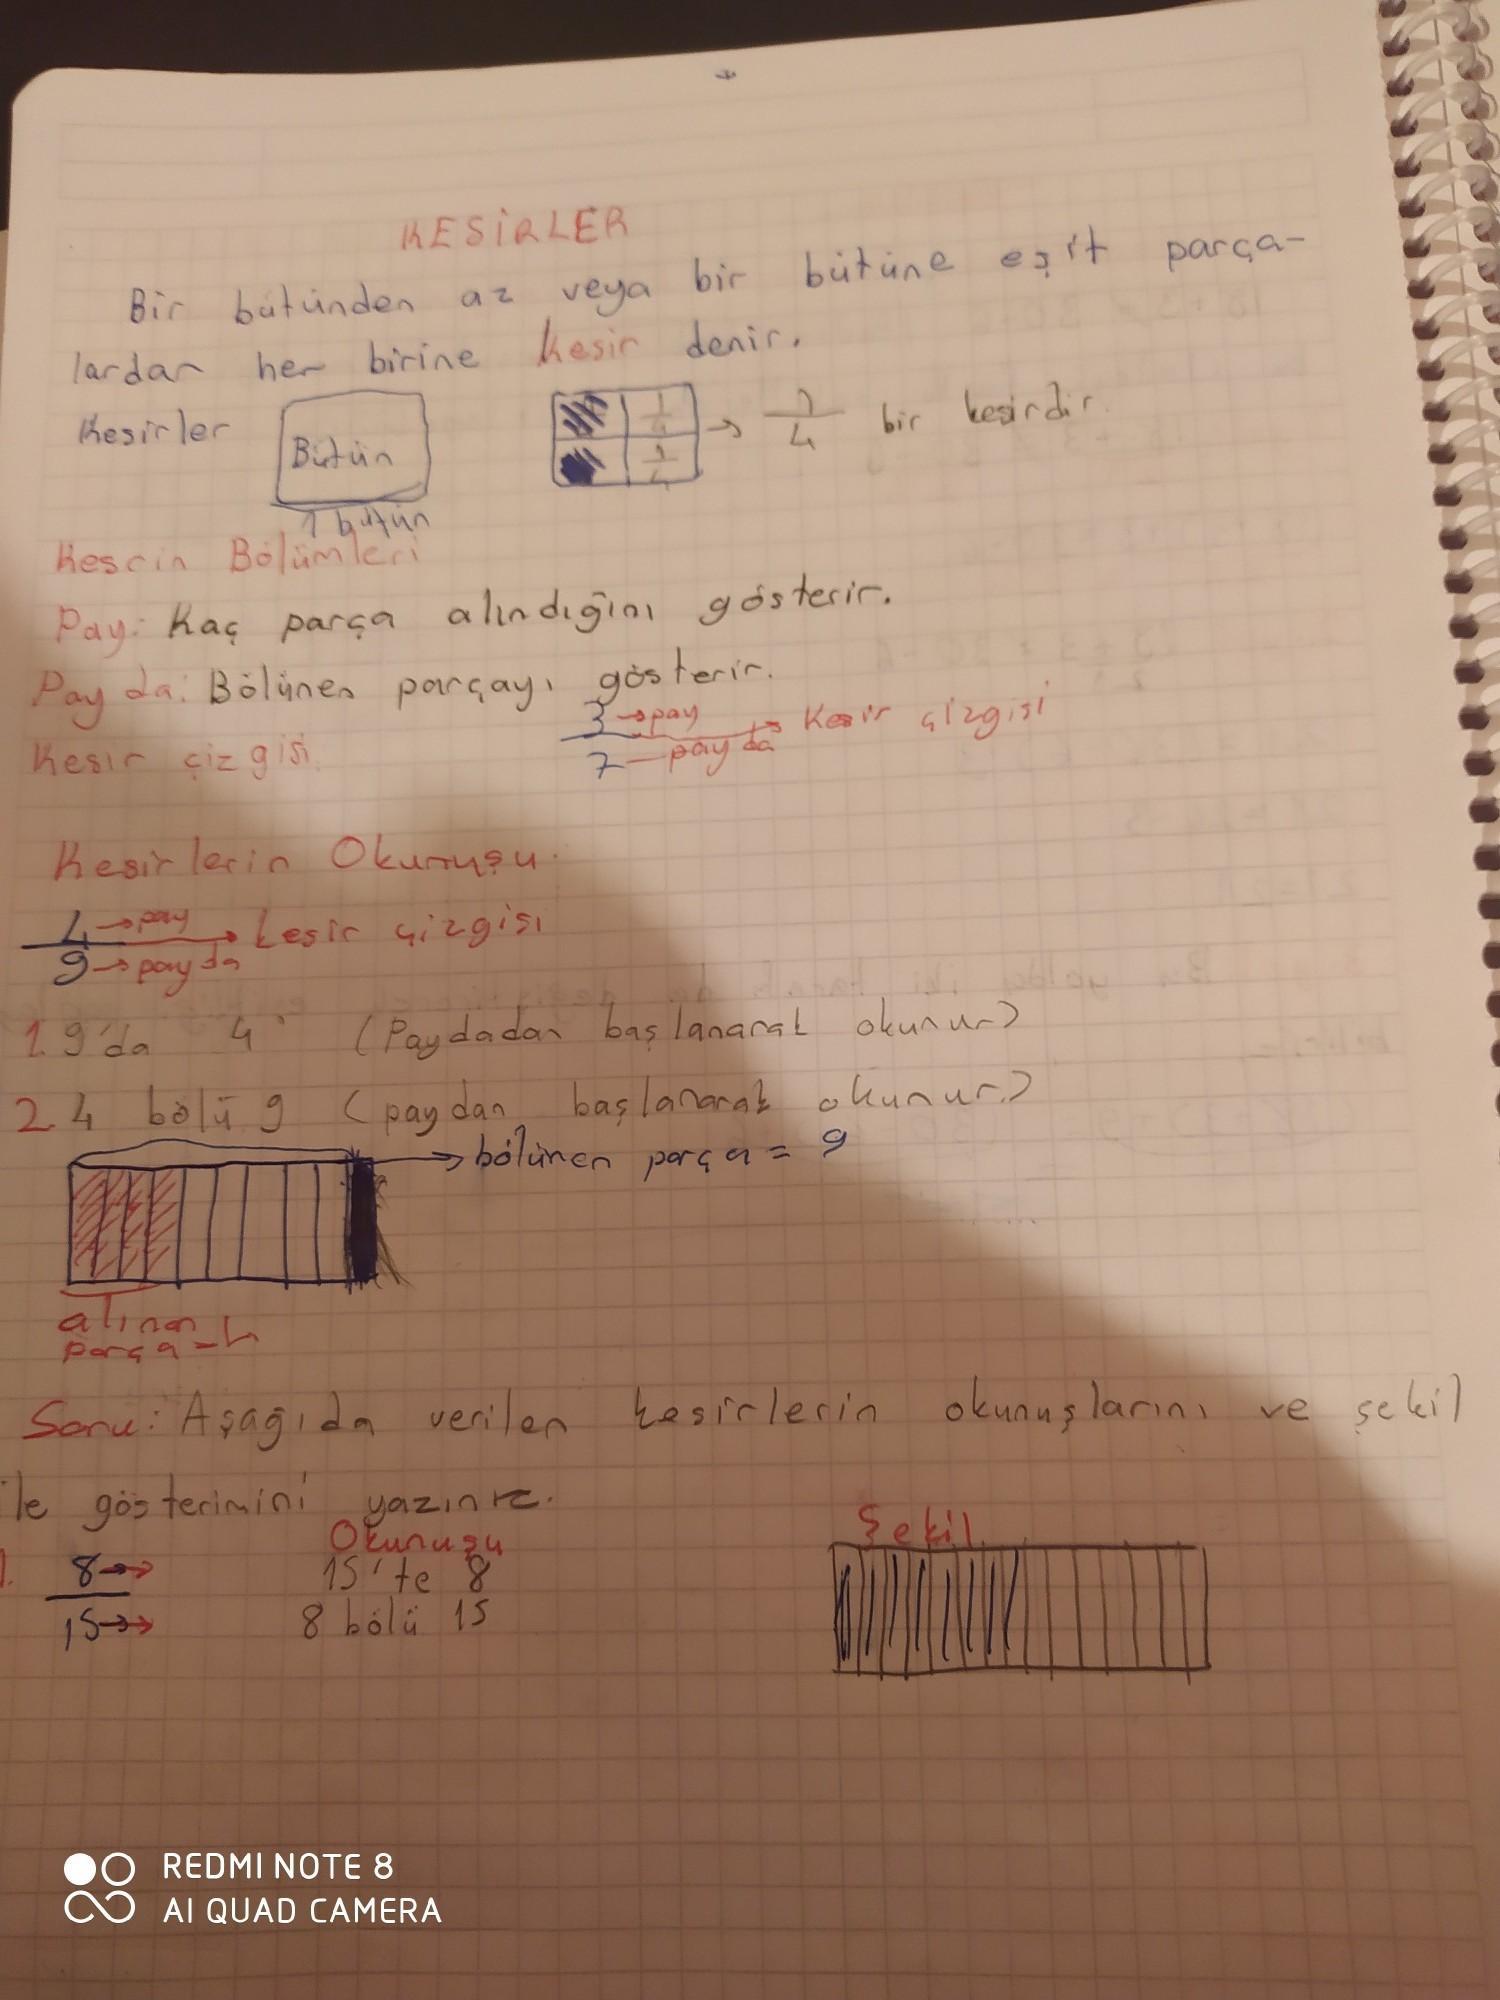 KESİRLER
Bir bütünden az veya bir bütüne eşit parça-
lardan her birine kesir denir.
Kesirler Bütün 1/4 1/4 → 1/4 bir kesirdir.
1 bütün
Kesrin Bölümleri
Pay: Kaç parça alındığını gösterir.
Payda: Bölünen parçayı gösterir.
3 → pay → Kesir çizgisi
Kesir çizgisi. 7 — payda
Kesirlerin Okunuşu.
4 → pay → kesir çizgisi
9 → payda
1. 9'da 4 (Paydadan başlanarak okunur)
2. 4 bölü 9 (paydan başlanarak okunur.)
→ bölünen parça = 9
alınan
parça = 4
Soru: Aşağıda verilen kesirlerin okunuşlarını ve şekil
ile gösterimini yazınız.
Okunuşu Şekil
1. 8 → 15'te 8
15 → 8 bölü 15
REDMI NOTE 8
AI QUAD CAMERA